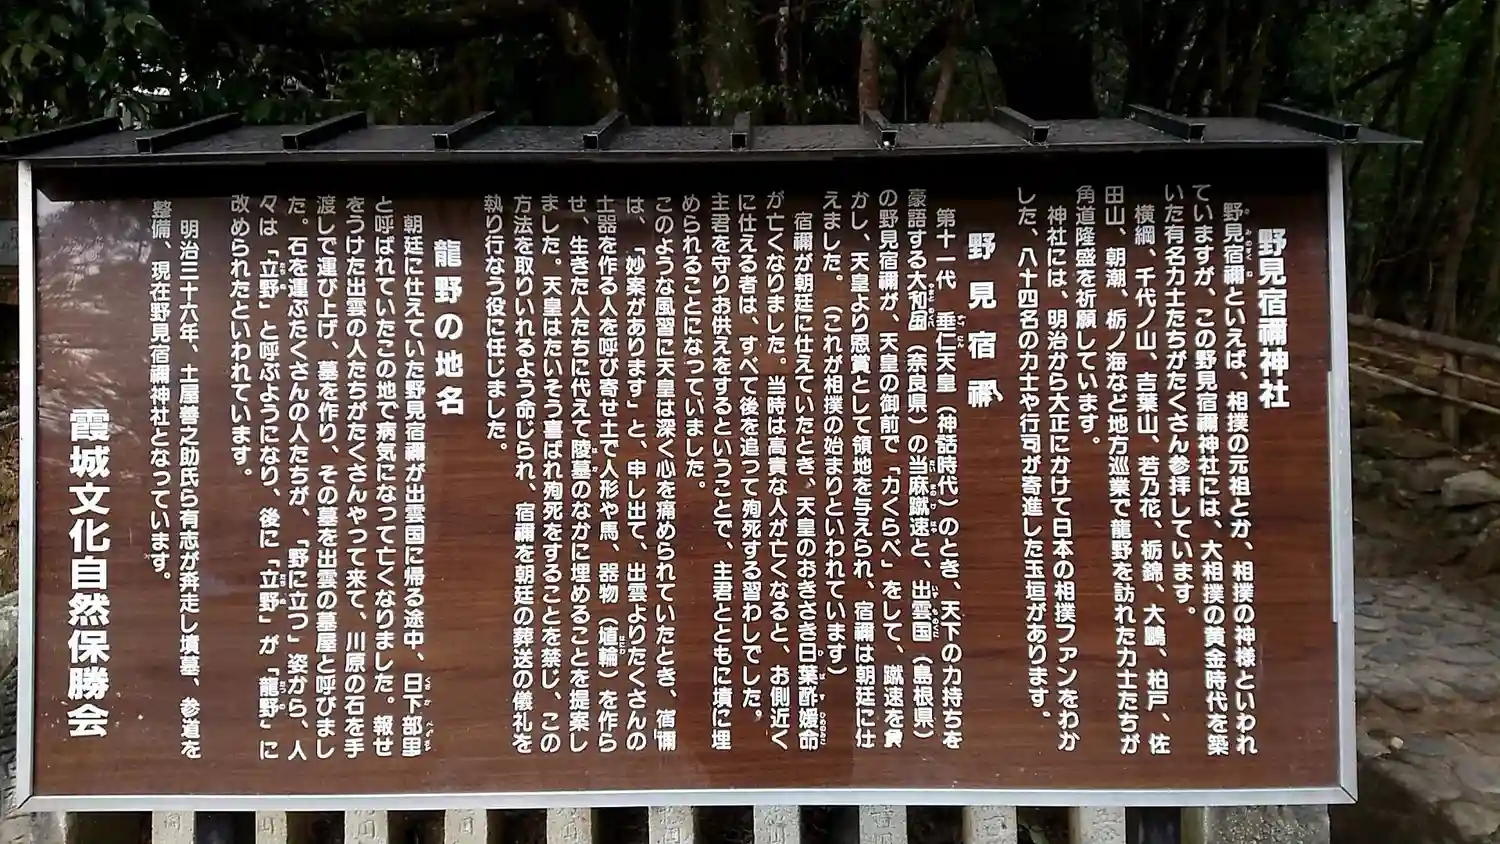 野見宿禰神社
野見宿禰といえば、相撲の元祖とか、相撲の神様といわれ
ていますが、この野見宿禰神社には、大相撲の黄金時代を築
いた有名力士たちがたくさん参拝しています。
横綱、千代ノ山、吉葉山、若乃花、栃錦、大鵬、柏戸、佐
田山、朝潮、栃ノ海など地方巡業で龍野を訪れた力士たちが
角道隆盛を祈願しています。
神社には、明治から大正にかけて日本の相撲ファンをわか
した、八十四名の力士や行司が寄進した玉垣があります。
野見宿禰
第十一代 垂仁天皇(神話時代)のとき、天下の力持ちを
豪語する大和国(奈良県)の当麻蹴速と、出雲国(島根県)
の野見宿禰が、天皇の御前で「力くらべ」をして、蹴速を負
かし、天皇より恩賞として領地を与えられ、宿禰は朝廷に仕
えました。(これが相撲の始まりといわれています)
宿禰が朝廷に仕えていたとき、天皇のおきさき日葉酢媛命
が亡くなりました。当時は高貴な人が亡くなると、お側近く
に仕える者は、すべて後を追って殉死する習わしでした。
主君を守りお供えをするということで、主君とともに墳に埋
められることになっていました。
このような風習に天皇は深く心を痛められていたとき、宿禰
は、「妙案があります」と、申し出て、出雲よりたくさんの
土器を作る人を呼び寄せ土で人形や馬、器物(埴輪)を作ら
せ、生きた人たちに代えて陵墓のなかに埋めることを提案し
ました。天皇はたいそう喜ばれ殉死をすることを禁じ、この
方法を取りいれるよう命じられ、宿禰を朝廷の葬送の儀礼を
執り行なう役に任じました。
龍野の地名
朝廷に仕えていた野見宿禰が出雲国に帰る途中、日下部里
と呼ばれていたこの地で病気になって亡くなりました。報せ
をうけた出雲の人たちがたくさんやって来て、川原の石を手
渡しで運び上げ、墓を作り、その墓を出雲の墓屋と呼びまし
た。石を運ぶたくさんの人たちが、「野に立つ」姿から、人
々は「立野」と呼ぶようになり、後に「立野」が「龍野」に
改められたといわれています。
明治三十六年、土屋善之助氏ら有志が奔走し墳墓、参道を
整備、現在野見宿禰神社となっています。
霞城文化自然保勝会